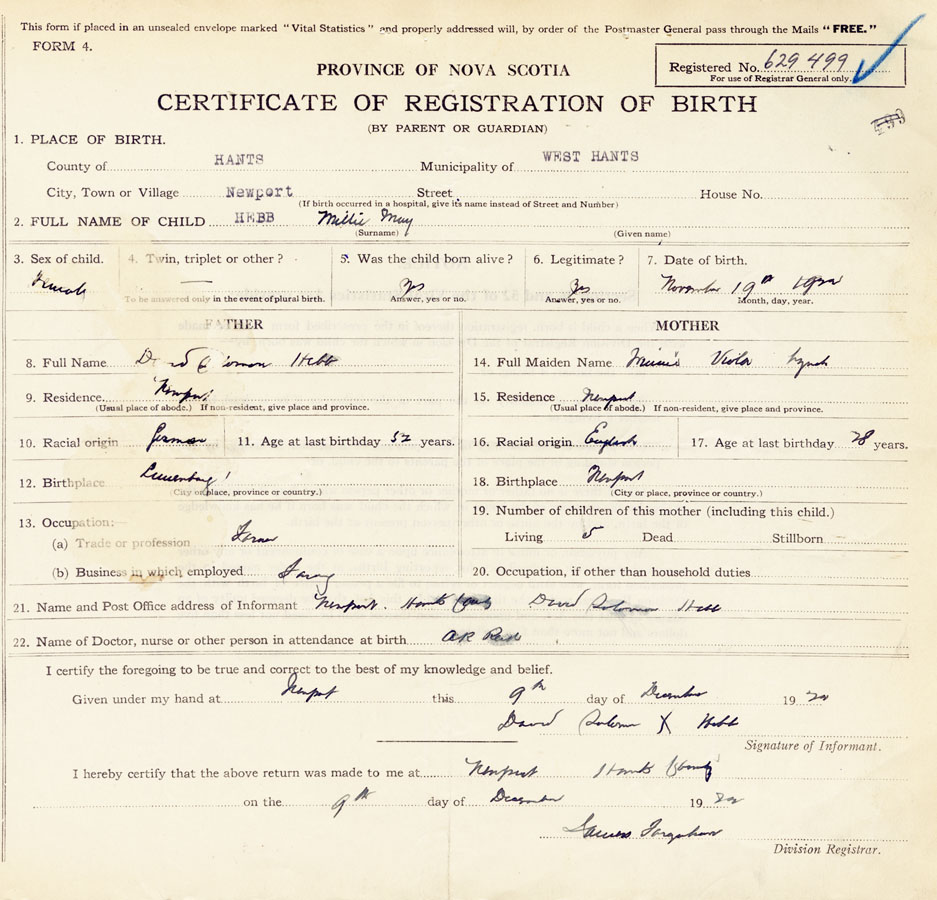 This form if placed in an unsealed envelope marked "Vital Statistics" and properly addressed will, by order of the Postmaster General pass through the Mails "FREE."
FORM 4.
Registered No. 629 499
For use of Registrar General only.
PROVINCE OF NOVA SCOTIA
CERTIFICATE OF REGISTRATION OF BIRTH
(BY PARENT OR GUARDIAN)
499
1. PLACE OF BIRTH.
County of HANTS Municipality of WEST HANTS
City, Town or Village Newport Street House No.
(If birth occurred in a hospital, give its name instead of Street and Number)
2. FULL NAME OF CHILD HEBB Millie May
(Surname) (Given name)
3. Sex of child. 4. Twin, triplet or other? 5. Was the child born alive? 6. Legitimate? 7. Date of birth.
Female — Yes Yes November 19th
To be answered only in the event of plural birth. Answer, yes or no. Answer, yes or no. Month, day, year.
FATHER MOTHER
8. Full Name Hebb 14. Full Maiden Name Viola Lynch
9. Residence Newport 15. Residence Newport
(Usual place of abode.) If non-resident, give place and province. (Usual place of abode.) If non-resident, give place and province.
10. Racial origin German 11. Age at last birthday 52 years. 16. Racial origin English 17. Age at last birthday 28 years.
12. Birthplace Lunenburg 18. Birthplace Newport
(City or place, province or country.) (City or place, province or country.)
13. Occupation: 19. Number of children of this mother (including this child.)
(a) Trade or profession Farmer Living 5 Dead Stillborn
(b) Business in which employed Farming 20. Occupation, if other than household duties
21. Name and Post Office address of Informant Newport. Hants County David Solomon Hebb
22. Name of Doctor, nurse or other person in attendance at birth
I certify the foregoing to be true and correct to the best of my knowledge and belief.
Given under my hand at Newport this 9th day of December 19
David Solomon X Hebb
Signature of Informant.
I hereby certify that the above return was made to me at Newport Hants County
on the 9th day of December 19
Farquhar
Division Registrar.